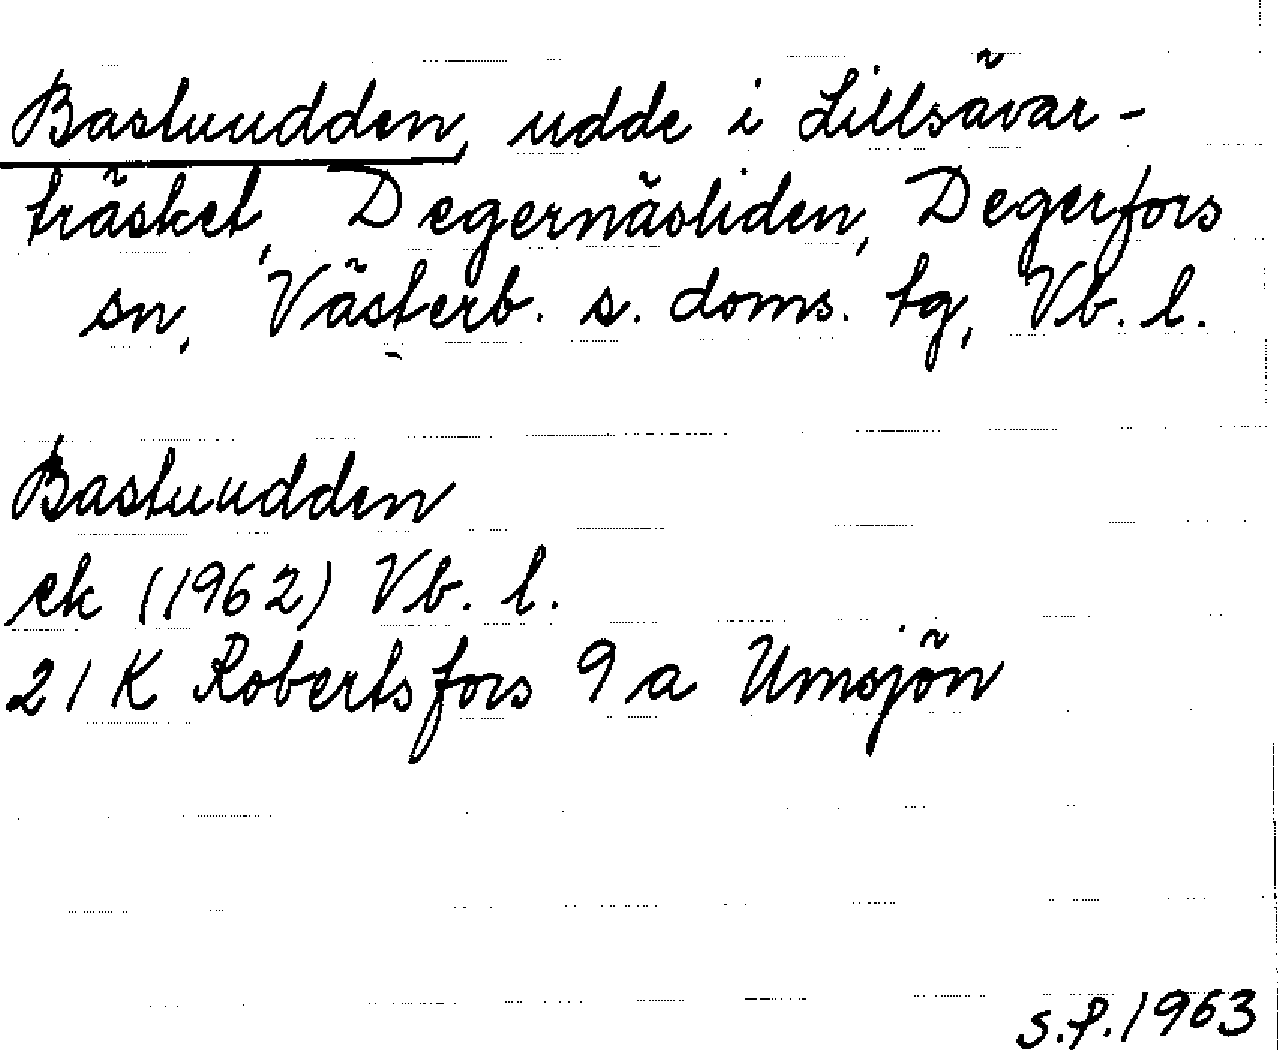 Bastuudden, udde i Lillsävar-
träsket, Degernäsliden, Degerfors
sn, Västerb. s. doms. tg, Vb. l.
Bastuudden
ek (1962) Vb. l.
21 K Robertsfors 9 a Umsjön
s.f. 1963